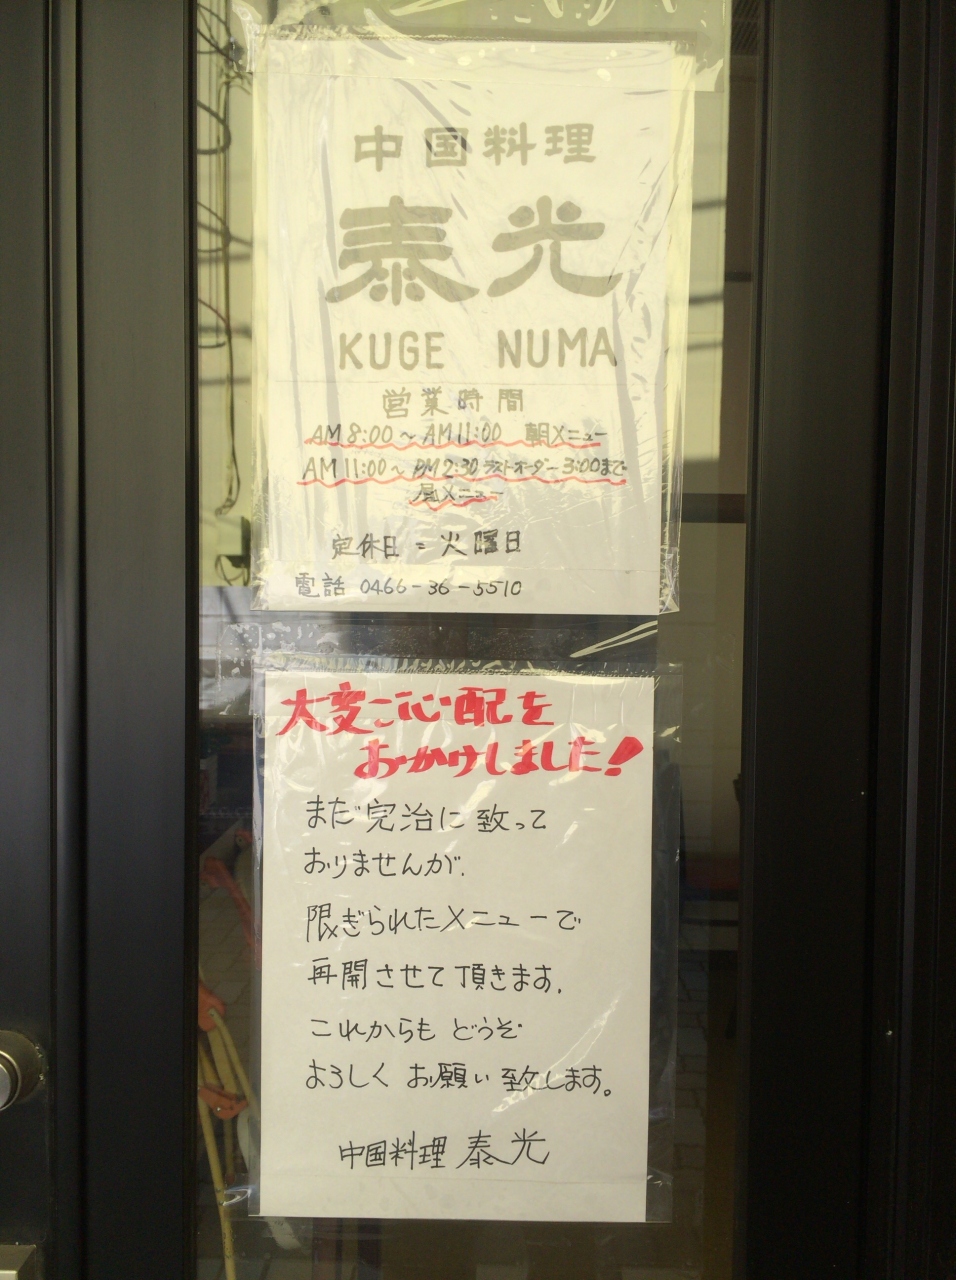 中国料理
泰光
KUGE NUMA
営業時間
AM8:00～AM11:00 朝メニュー
AM11:00～PM2:30ラストオーダー3:00まで
昼メニュー
定休日=火曜日
電話 0466-36-5510
大変ご心配を
おかけしました!
まだ完治に致って
おりませんが、
限ぎられたメニューで
再開させて頂きます。
これからもどうぞ
よろしくお願い致します。
中国料理 泰光